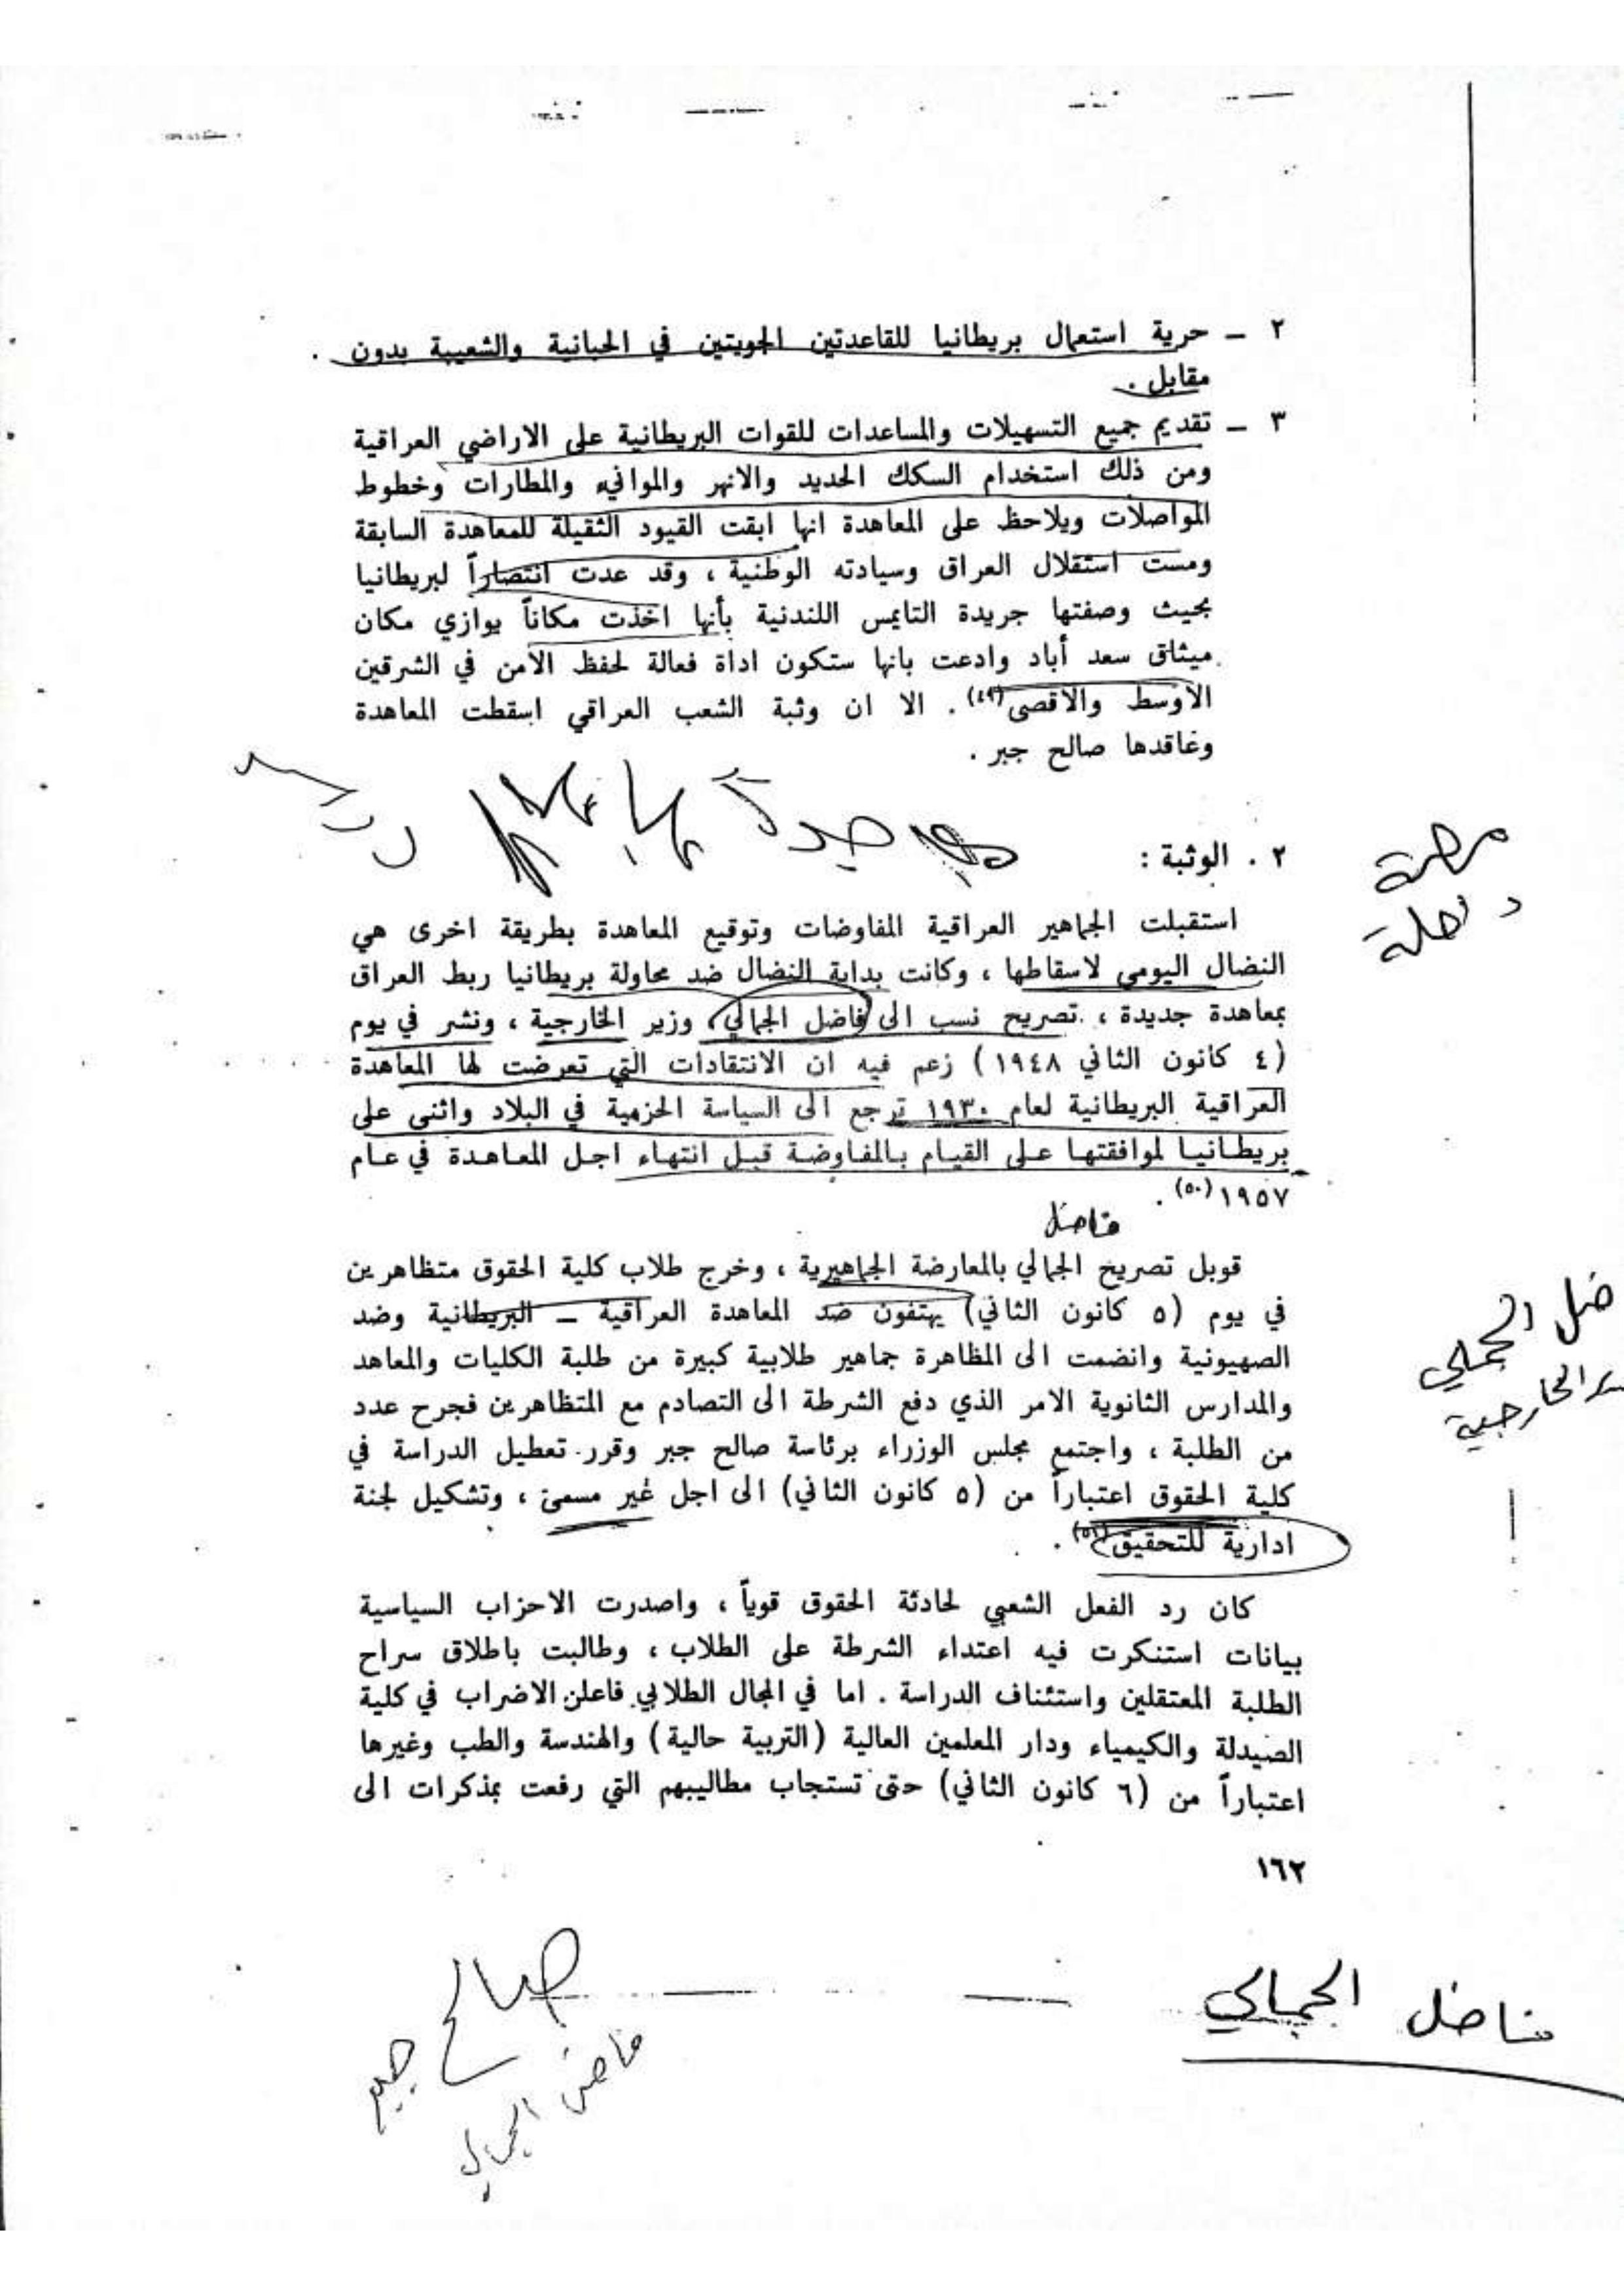 ٢ - حرية استعمال بريطانيا للقاعدتين الجويتين في الحبانية والشعيبة بدون
مقابل .
٣ - تقديم جميع التسهيلات والمساعدات للقوات البريطانية على الاراضي العراقية
ومن ذلك استخدام السكك الحديد والانهر والموانيء والمطارات وخطوط
المواصلات ويلاحظ على المعاهدة انها ابقت القيود الثقيلة للمعاهدة السابقة
ومست استقلال العراق وسيادته الوطنية ، وقد عدت انتصاراً لبريطانيا
بحيث وصفتها جريدة التايمس اللندنية بأنها اخذت مكاناً يوازي مكان
ميثاق سعد أباد وادعت بانها ستكون اداة فعالة لحفظ الأمن في الشرقين
الاوسط والاقصى(٤٩) . الا ان وثبة الشعب العراقي اسقطت المعاهدة
وعاقدها صالح جبر .
٢ . الوثبة :
استقبلت الجماهير العراقية المفاوضات وتوقيع المعاهدة بطريقة اخرى هي
النضال اليومي لاسقاطها ، وكانت بداية النضال ضد محاولة بريطانيا ربط العراق
بمعاهدة جديدة ، تصريح نسب الى فاضل الجمالي ، وزير الخارجية ، ونشر في يوم
(٤ كانون الثاني ١٩٤٨) زعم فيه ان الانتقادات التي تعرضت لها المعاهدة
العراقية البريطانية لعام ١٩٣٠ ترجع الى السياسة الحزمية في البلاد واثنى على
بريطانيا لموافقتها على القيام بالمفاوضة قبل انتهاء اجل المعاهدة في عام
١٩٥٧(٥٠) .
فاضل
قوبل تصريح الجمالي بالمعارضة الجماهيرية ، وخرج طلاب كلية الحقوق متظاهرين
في يوم (٥ كانون الثاني) يهتفون ضد المعاهدة العراقية - البريطانية وضد
الصهيونية وانضمت الى المظاهرة جماهير طلابية كبيرة من طلبة الكليات والمعاهد
والمدارس الثانوية الامر الذي دفع الشرطة الى التصادم مع المتظاهرين فجرح عدد
من الطلبة ، واجتمع مجلس الوزراء برئاسة صالح جبر وقرر تعطيل الدراسة في
كلية الحقوق اعتباراً من (٥ كانون الثاني) الى اجل غير مسمى ، وتشكيل لجنة
ادارية للتحقيق(٥١) .
كان رد الفعل الشعبي لحادثة الحقوق قوياً ، واصدرت الاحزاب السياسية
بيانات استنكرت فيه اعتداء الشرطة على الطلاب ، وطالبت باطلاق سراح
الطلبة المعتقلين واستئناف الدراسة . اما في المجال الطلابي فاعلن الاضراب في كلية
الصيدلة والكيمياء ودار المعلمين العالية (التربية حالية) والهندسة والطب وغيرها
اعتباراً من (٦ كانون الثاني) حتى تستجاب مطاليبهم التي رفعت بمذكرات الى
ضل الجمالي
ير الخارجية
١٦٢
فاضل الجمالي
صالح جبر
فاضل الجمالي